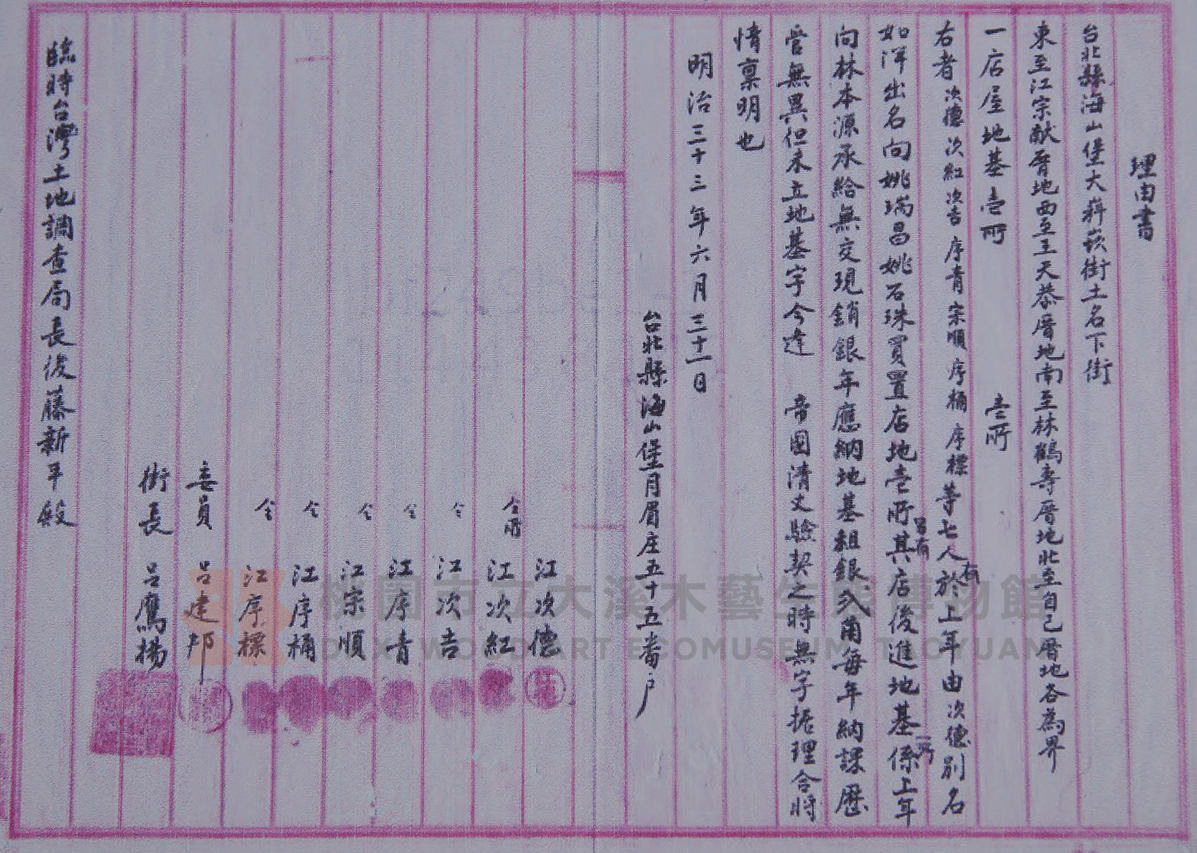 理由書
台北縣海山堡大嵙崁街土名下街
東至江宗猷厝地西至王天恭厝地南至林鶴壽厝地北至自己厝地各為界
一店屋地基壱所 壱所
右者次德次紅次吉序青宗順序桶序標等七人有於上年由次德別名
如洋出名向姚瑞昌姚石珠買置店地壱所另有其店後進地基一所係上年
向林本源承給無交現銷銀年應納地基租銀 角每年納課歷
管無異但未立地基字今逢 帝國清丈驗契之時無字据理合將
情稟明也
明治三十三年六月三十一日
台北縣海山堡月眉庄五十五番戶
江次德
仝所 江次紅
仝 江次吉
仝 江序青
仝 江宗順
仝 江序桶
仝 江序標
委員 呂建邦
街長 呂鷹揚
臨時台灣土地調查局長後藤新平殿
桃園市立大溪木藝生態博物館
DAXI WOOD ART ECOMUSEUM TAOYUAN